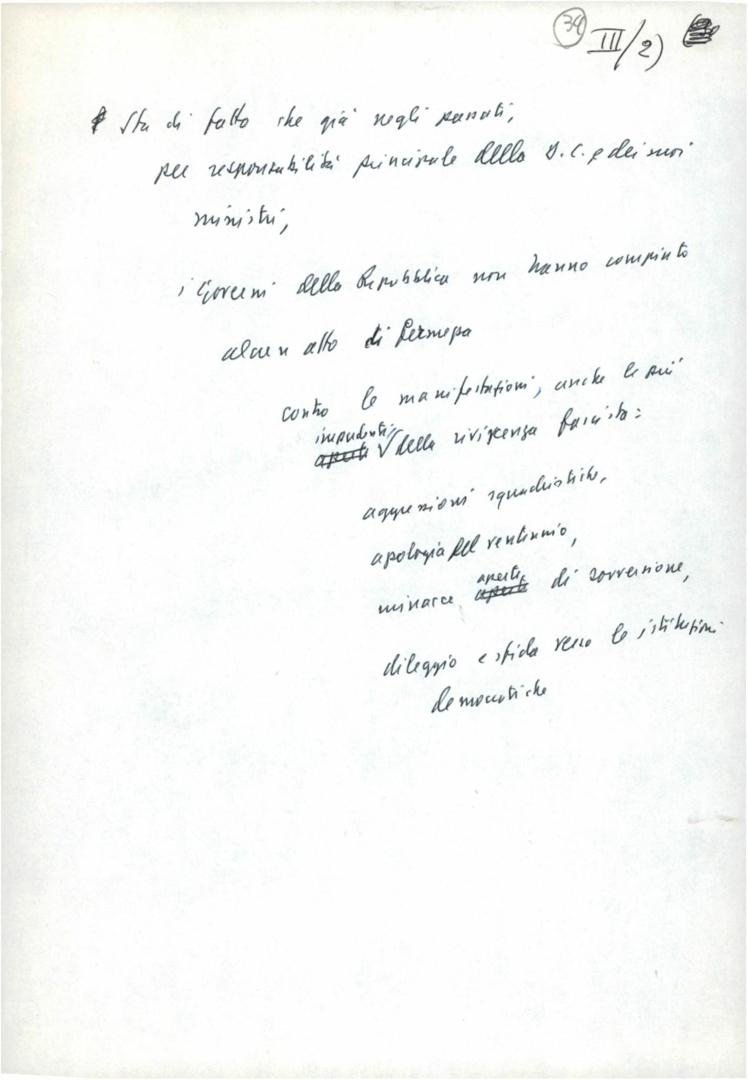 34 III/2)
Sta di fatto che già negli passati,
per responsabilità principale della D.C. e dei suoi
ministri,
i Governi della Repubblica non hanno compiuto
alcun atto di fermezza
contro le manifestazioni, anche le più
impudenti
aperte della reviviscenza fascista:
aggressioni squadristiche,
apologia del ventennio,
aperte
minacce aperte di sovversione,
dileggio e sfida verso le istituzioni
democratiche